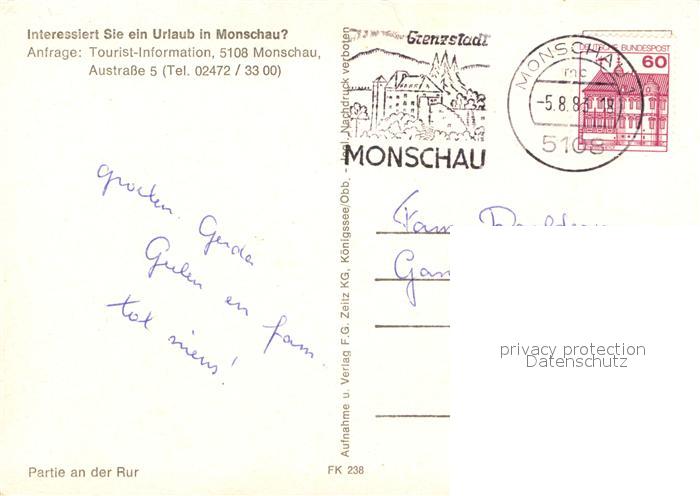 Interessiert Sie ein Urlaub in Monschau?
Anfrage: Tourist-Information, 5108 Monschau,
Austraße 5 (Tel. 02472 / 33 00)
groeten. Gerda
en fam.
tot ziens!
Partie an der Rur
FK 238
Aufnahme u. Verlag F.G. Zeitz KG, Königssee/Obb. - Jegl. Nachdruck verboten
Grenzstadt
MONSCHAU
MONSCHAU
mc
-5.8.83
5108
DEUTSCHE BUNDESPOST
60
Fam
privacy protection
Datenschutz